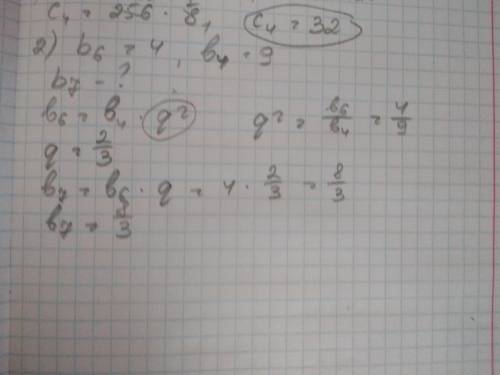 c₄ = 256 · 1/8, c₄ = 32
2) b₆ = 4, b₄ = 9
b₇ - ?
b₆ = b₄ · q² q² = b₆/b₄ = 4/9
q = 2/3
b₇ = b₆ · q = 4 · 2/3 = 8/3
b₇ = 8/3